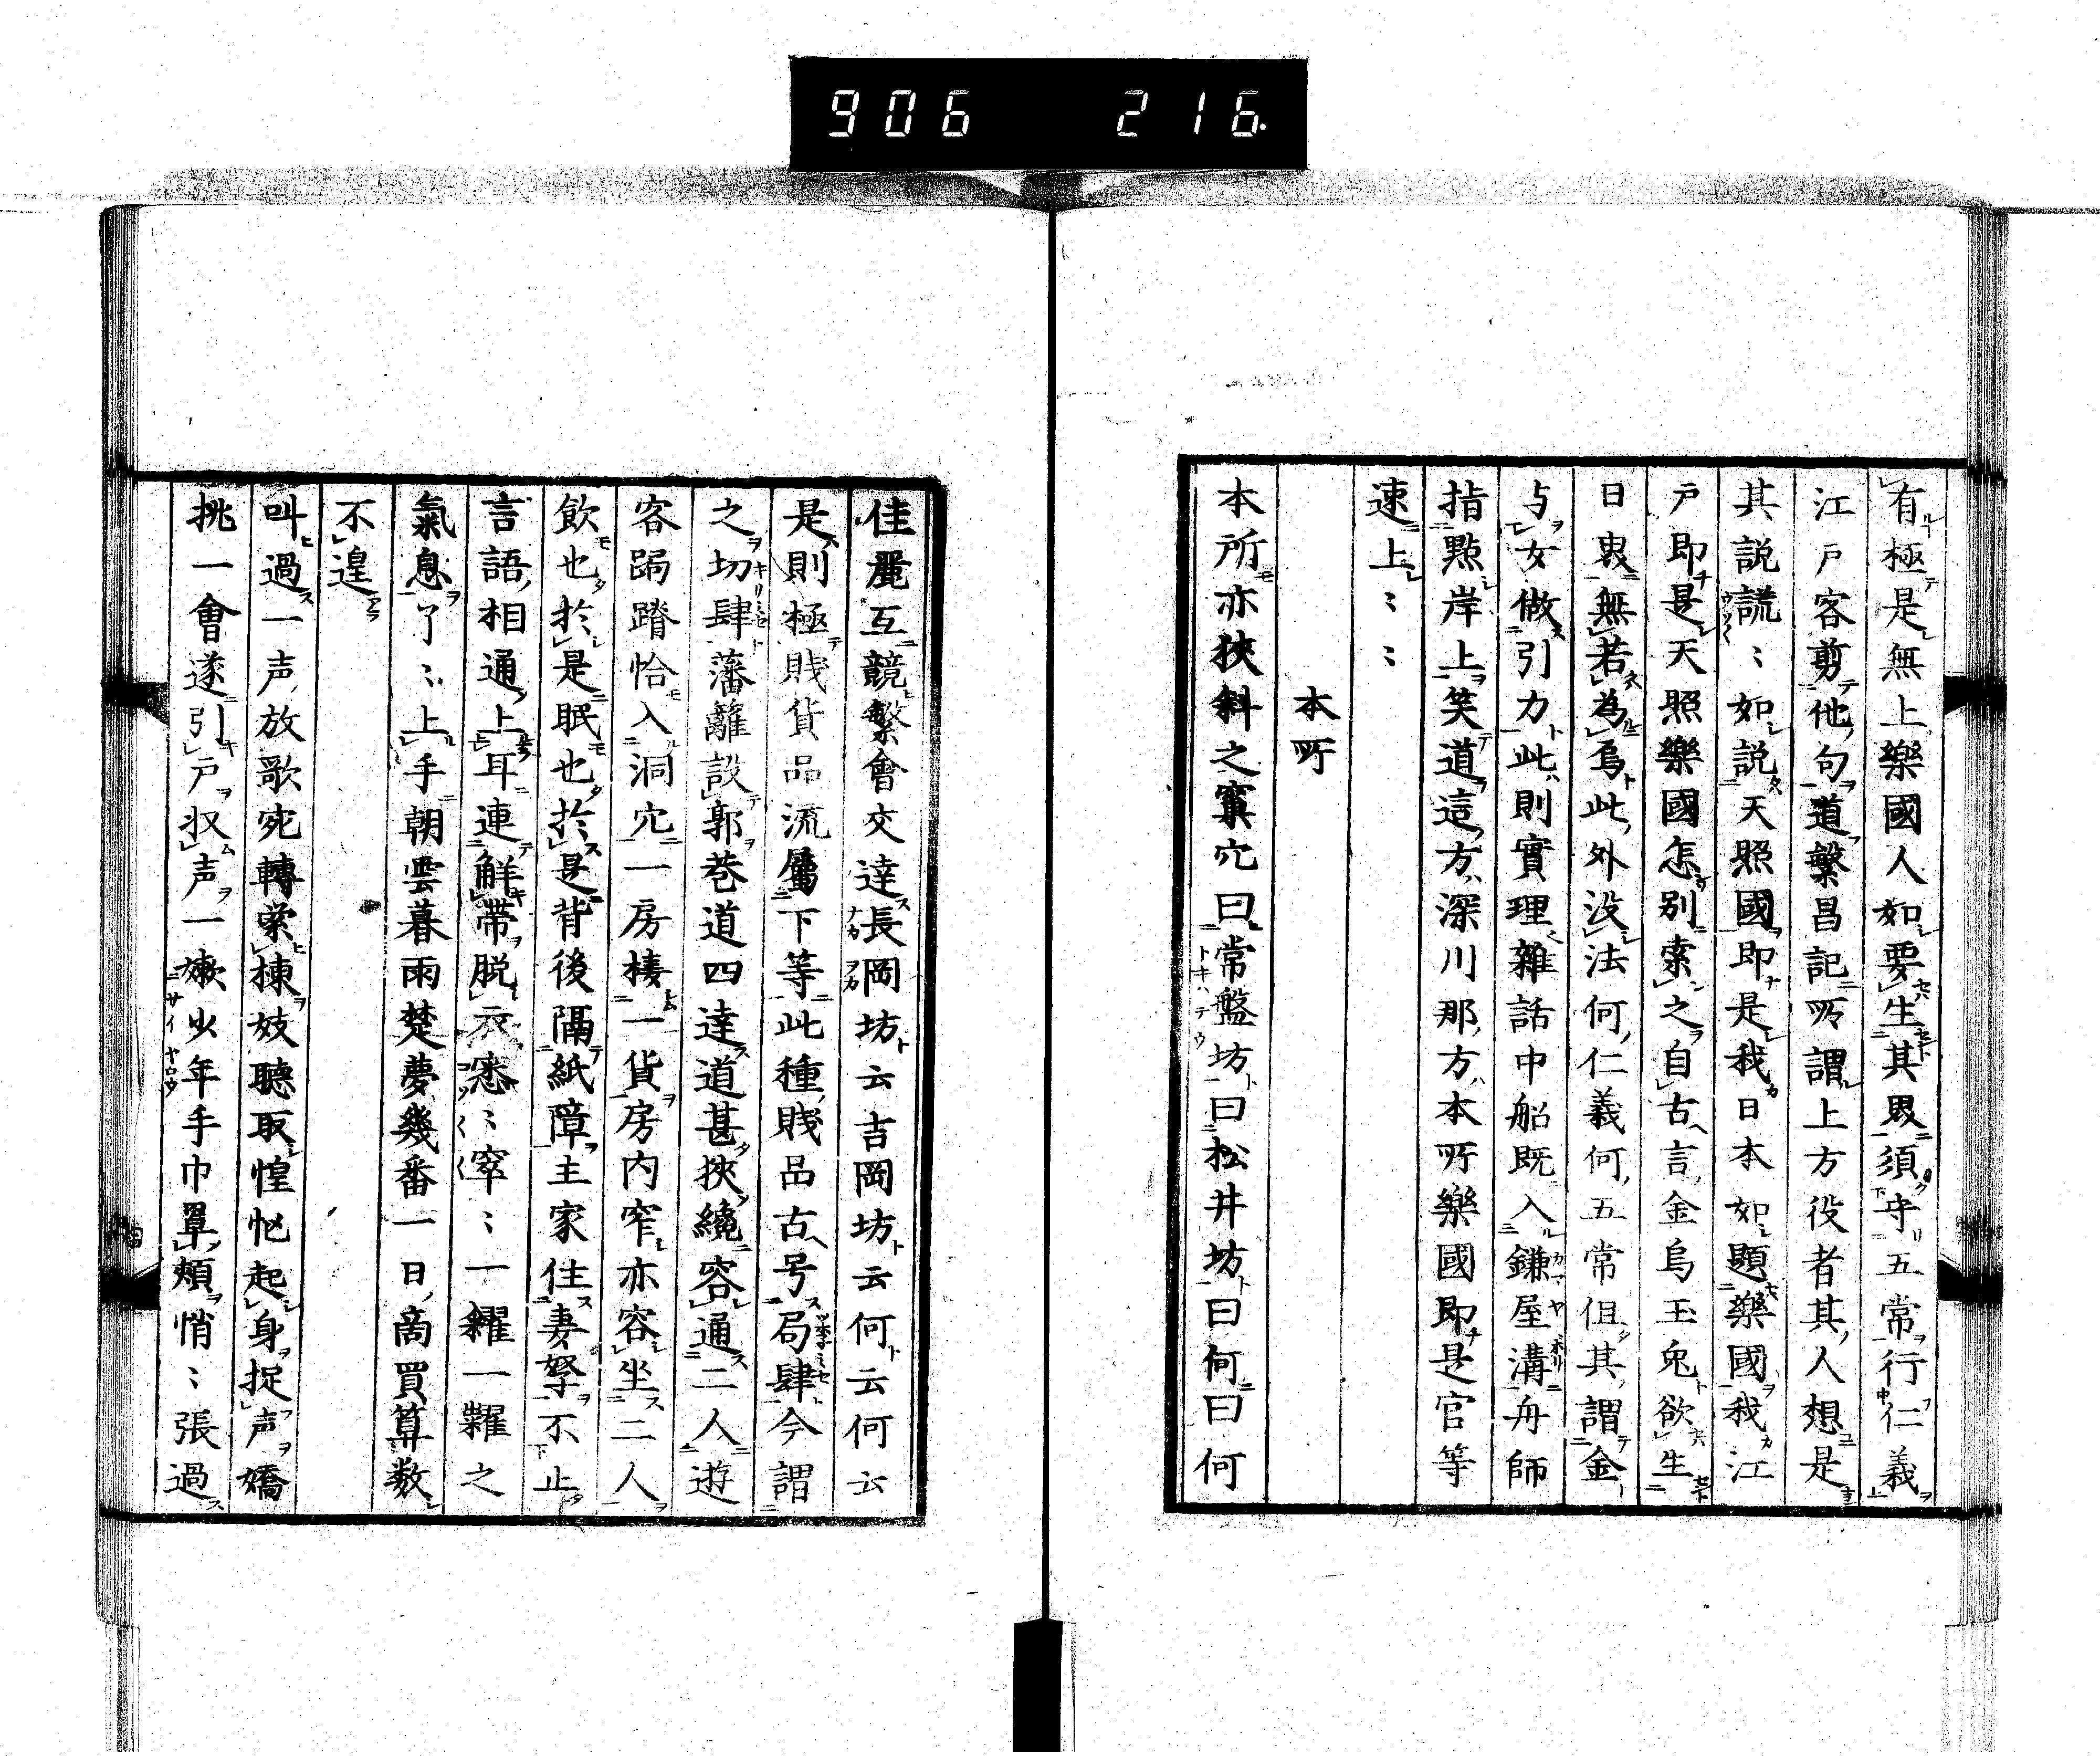 906 216.
有極是無上樂國人如要生其思須守五常行仁義
江戸客剪他句道繁昌記所謂上方役者其人想是
其説謊〻如説天照國即是我日本如題樂國我江
戸即是天照樂國怎別索之自古言金烏玉兔欲生
日里無若為烏此外没法何仁義何五常但其謂金
与女做引力此則實理雜話中船既入鎌屋溝舟師
指點岸上笑道這方深川那方本所樂國即是官等
速上〻〻
本所
本所亦狹斜之窠穴曰常盤坊曰松井坊曰何曰何
佳麗互競繁會交達長岡坊云吉岡坊云何云何云
是則極賎貨品流屬下等此種賎品古号局肆今謂
之切肆藩籬設郭巷道四達道甚狹纔容通二人遊
客跼蹐恰入洞穴一房棲一貨房内窄亦容坐二人
飲也於是眠也於是背後隔紙障主家住妻孥不止
言語相通上耳連觧帯脱衣悉〻窣〻一糶一糴之
氣息了〻上手朝雲暮雨楚夢幾番一日商買算数
不遑
叫過一声放歌宛轉梁棟妓聽取惶忙起身捉声嬌
挑一會遂引戸収声一嫩少年手巾罩頬悄〻張過